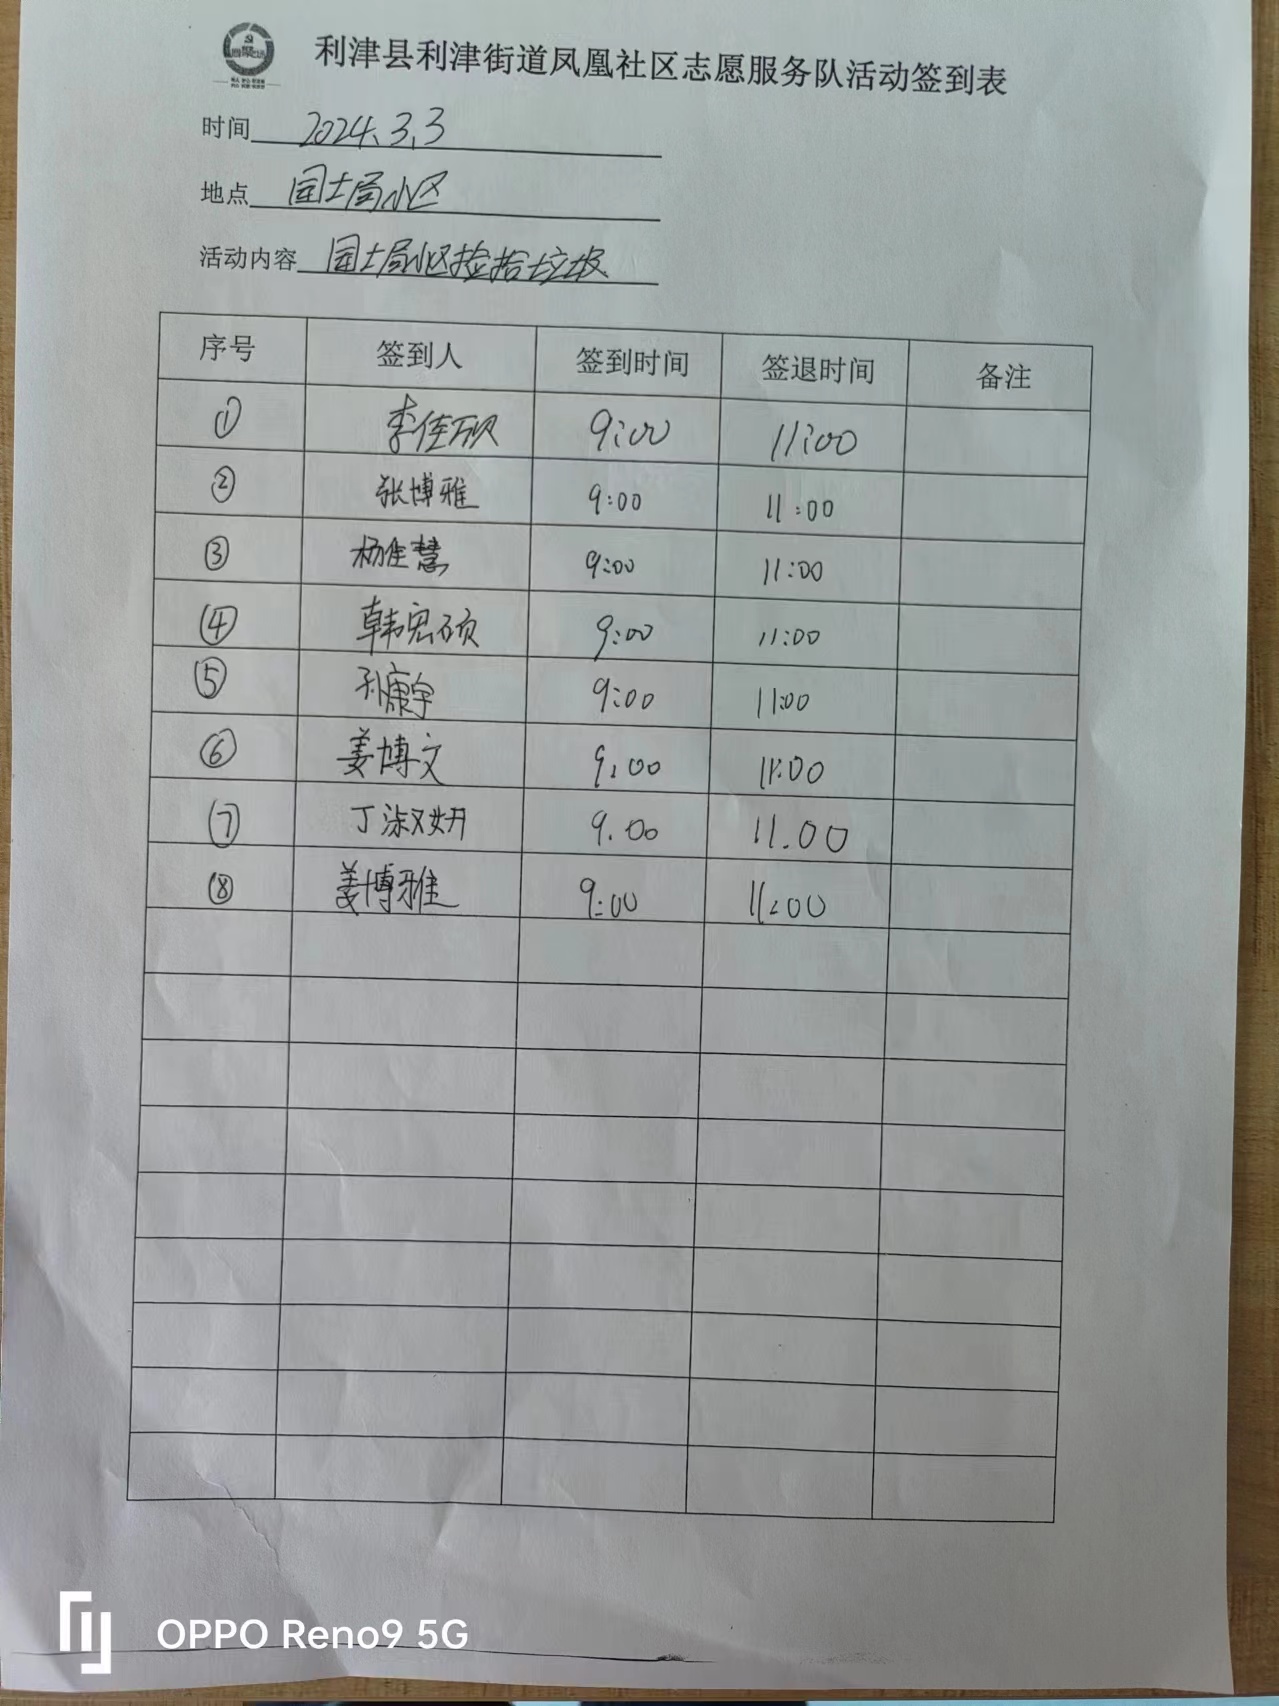 利津县利津街道凤凰社区志愿服务队活动签到表
时间 2024.3.3
地点 国土局小区
活动内容 国土局小区捡拾垃圾
序号 签到人 签到时间 签退时间 备注
① 李佳欣 9:00 11:00
② 张博雅 9:00 11:00
③ 杨佳慧 9:00 11:00
④ 韩宏硕 9:00 11:00
⑤ 孙康宇 9:00 11:00
⑥ 姜博文 9:00 11:00
⑦ 丁淑妍 9.00 11.00
⑧ 姜博雅 9:00 11:00
OPPO Reno9 5G